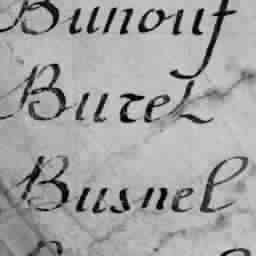 Bunouf
Buret
Busnel